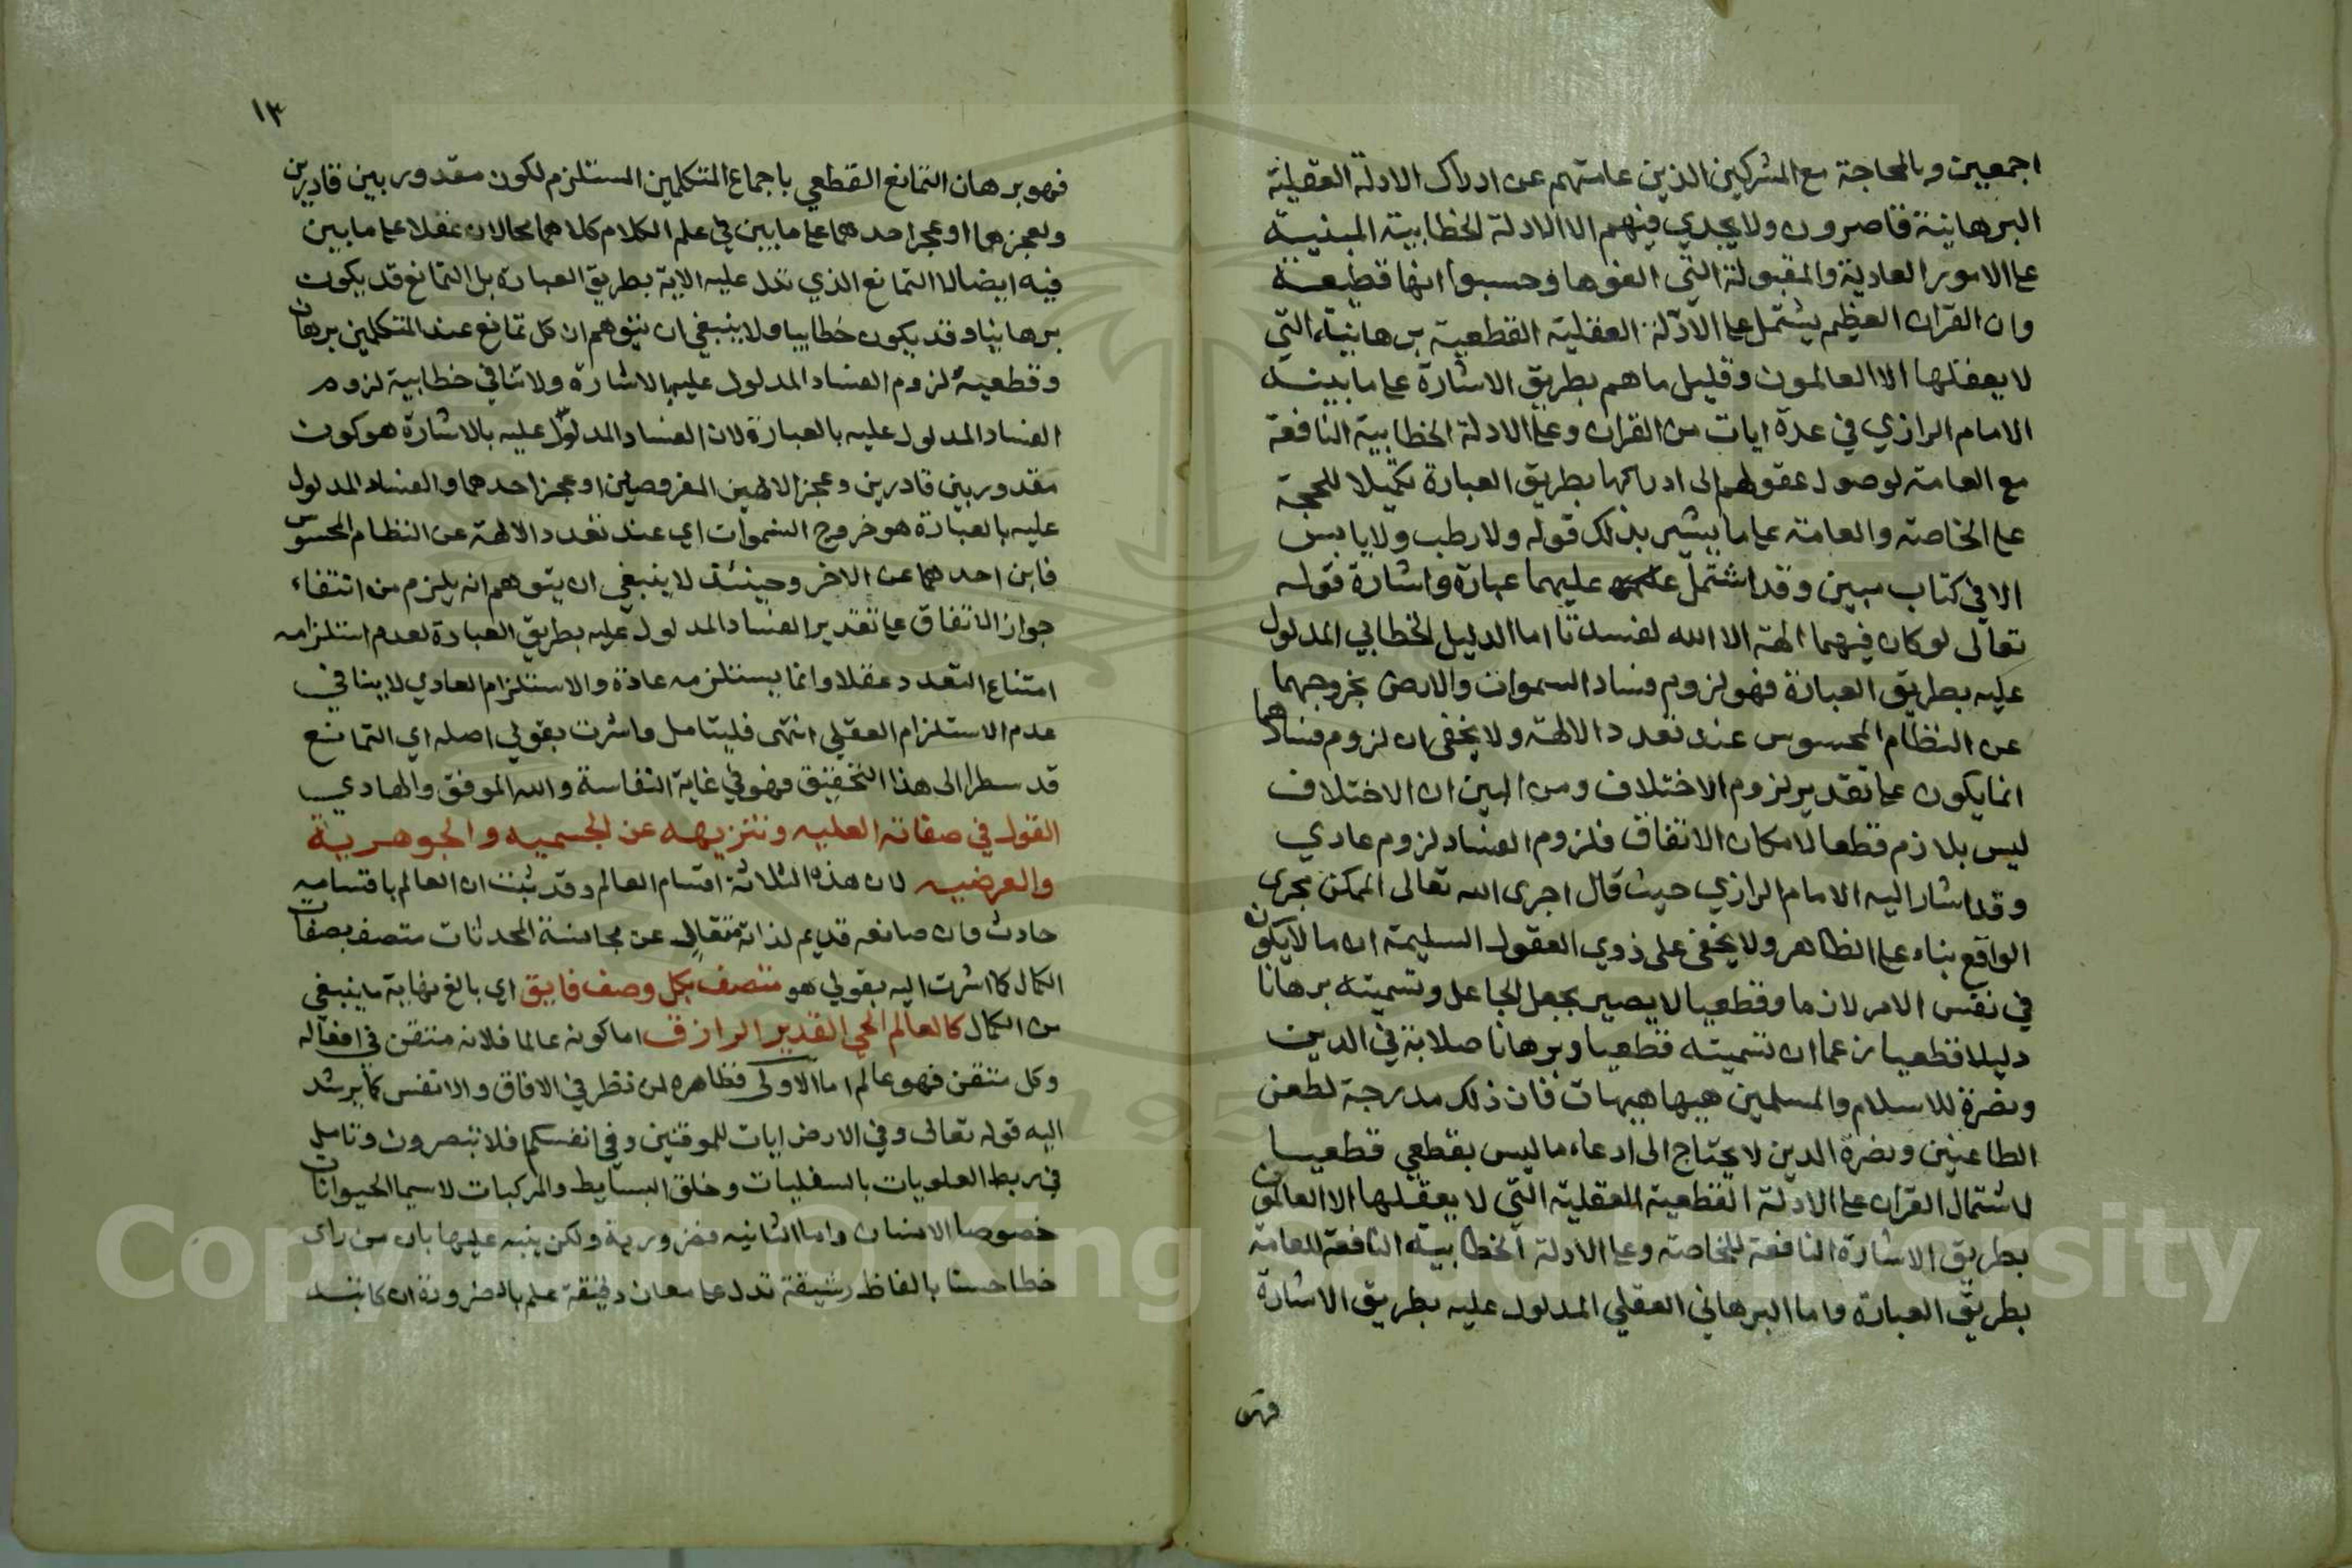 اجمعين وبالمحاجة مع المشركين الذين عامتهم عن ادراك الادلة العقلية
البرهانية قاصرون ولا يجدي فيهم الا الادلة الخطابية المبنية
على الامور العادية والمقبولة التي الفوها وحسبوا انها قطعية
وان القران العظيم يشتمل على الادلة العقلية القطعية برهانية التي
لا يعقلها الا العالمون وقليل ما هم بطريق الاشارة على ما بينه
الامام الرازي في عدة ايات من القران وعلى الادلة الخطابية النافعة
مع العامة لوصول عقولهم الى ادراكها بطريق العبارة تكميلا للحجة
على الخاصة والعامة على ما يشير بذلك قوله ولا رطب ولا يابس
الا في كتاب مبين وقد اشتمل عليهما عبارة واشارة قوله
تعالى لو كان فيهما الهة الا الله لفسدتا اما الدليل الخطابي المدلول
عليه بطريق العبارة فهو لزوم فساد السموات والارض بخروجهما
عن النظام المحسوس عند تعدد الالهة ولا يخفى ان لزوم فسادهما
انما يكون على تقدير لزوم الاختلاف ومن البين ان الاختلاف
ليس بلازم قطعا لامكان الاتفاق فلزوم الفساد لزوم عادي
وقد اشار اليه الامام الرازي حيث قال اجرى الله تعالى الممكن مجرى
الواقع بناء على الظاهر ولا يخفى على ذوي العقول السليمة ان ما لا يكون
في نفس الامر لازما وقطعيا لا يصير بجعل الجاعل وتسميته برهانا
دليلا قطعيا زعما ان تسميته قطعيا وبرهانا صلابة في الدين
ونصرة للاسلام والمسلمين هيهات هيهات فان ذلك مدرجة لطعن
الطاعنين ونصرة الدين لا يحتاج الى ادعاء ما ليس بقطعي قطعيا
لاشتمال القران على الادلة القطعية العقلية التي لا يعقلها الا العالمون
بطريق الاشارة النافعة للخاصة وعلى الادلة الخطابية النافعة للعامة
بطريق العبارة واما البرهاني العقلي المدلول عليه بطريق الاشارة
فهو
١٣
فهو برهان التمانع القطعي باجماع المتكلمين المستلزم لكون مقدور بين قادرين
ولعجزهما او عجز احدهما على ما بين في علم الكلام كلاهما محالان عقلا على ما بين
فيه ايضا لا التمانع الذي تدل عليه الاية بطريق العبارة بل التمانع قد يكون
برهانيا وقد يكون خطابيا ولا ينبغي ان يتوهم ان كل تمانع عند المتكلمين برهان
وقطعية لزوم الفساد المدلول عليه بالاشارة ولا تنافي خطابية لزوم
الفساد المدلول عليه بالعبارة لان الفساد المدلول عليه بالاشارة هو كون
مقدور بين قادرين وعجز الالهين المفروضين او عجز احدهما والفساد المدلول
عليه بالعبارة هو خروج السموات اي عند تعدد الالهة عن النظام المحسوس
فاين احدهما عن الاخر وحينئذ لا ينبغي ان يتوهم انه يلزم من انتفاء
جواز الاتفاق على تقدير الفساد المدلول عليه بطريق العبارة لعدم استلزامه
امتناع التعدد عقلا وانما يستلزمه عادة والاستلزام العادي لا ينافي
عدم الاستلزام العقلي انتهى فليتامل واشرت بقولي اصله اي التمانع
قد سطر الى هذا التحقيق فهو في غاية النفاسة والله الموفق والهادي
القول في صفاته العليه وتنزيهه عن الجسميه والجوهرية
والعرضيه لان هذه الثلاثة اقسام العالم وقد ثبت ان العالم باقسامه
حادث وان صانعه قديم لذاته متعال عن مجانسة المحدثات متصف بصفات
الكمال كما اشرت اليه بقولي هو متصف بكل وصف فايق اي بالغ نهاية ما ينبغي
من الكمال كالعالم الحي القدير الرازق اما كونه عالما فلانه متقن في افعاله
وكل متقن فهو عالم اما الاولى فظاهره لمن نظر في الافاق والانفس كما يرشد
اليه قوله تعالى وفي الارض ايات للموقنين وفي انفسكم افلا تبصرون وتامل
في ربط العلويات بالسفليات وخلق البسايط والمركبات لاسيما الحيوانات
خصوصا الانسان واما الثانيه فضرورية ولكن ينبه عليها بان من راى
خطا حسنا بالفاظ رشيقة تدل على معان دقيقة علم بالضرورة ان كاتبه
Copyright © King Saud University
1957